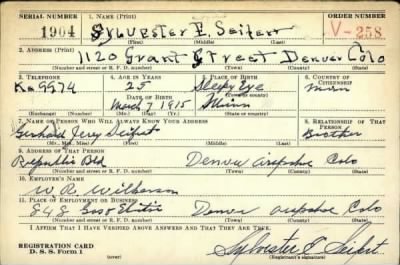 SERIAL NUMBER 1. NAME (Print) ORDER NUMBER
1904 Sylvester E. Seifert V-258
(First) (Middle) (Last)
2. ADDRESS (Print)
1120 Grant Street Denver Colo
(Number and street or R. F. D. number) (Town) (County) (State)
3. TELEPHONE 4. AGE IN YEARS 5. PLACE OF BIRTH 6. COUNTRY OF CITIZENSHIP
Ke 9974 25 Sleepy Eye
DATE OF BIRTH (Town or county)
March 7 1915 Minn
(Exchange) (Number) (Mo.) (Day) (Yr.) (State or country)
7. NAME OF PERSON WHO WILL ALWAYS KNOW YOUR ADDRESS 8. RELATIONSHIP OF THAT PERSON
Gerhard Jerry Seifert Brother
(Mr., Mrs., Miss) (First) (Middle) (Last)
9. ADDRESS OF THAT PERSON
Republic Bld Denver Colo
(Number and street or R. F. D. number) (Town) (County) (State)
10. EMPLOYER'S NAME
W. R. Wilkerson
11. PLACE OF EMPLOYMENT OR BUSINESS
Denver Colo
(Number and street or R. F. D. number) (Town) (County) (State)
I AFFIRM THAT I HAVE VERIFIED ABOVE ANSWERS AND THAT THEY ARE TRUE.
REGISTRATION CARD
D. S. S. Form 1 Sylvester E. Seifert
(Registrant's signature)